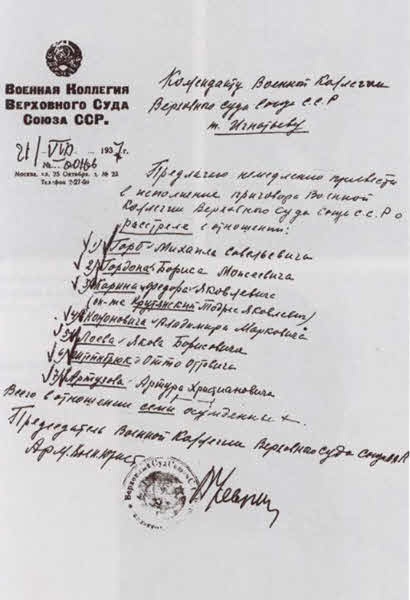 Военная Коллегия
Верховного Суда
Союза ССР.
21/VIII 1937 г.
№ 00186
Москва, ул. 25 Октября, д. № 23
Телефон 2-27-69
Коменданту Военной Коллегии
Верховного суда Союза ССР
т. Игнатьеву
Предлагаю немедленно привести
в исполнение приговора Военной
Коллегии Верховного Суда Союза С.С.Р о
расстреле в отношении:
1) Горб Михаила Савельевича
2) Гордона Бориса Моисеевича
3) Гарина Федора Яковлевича
(он-же Крутянский Яковлевич)
4) Кононовича Владимира Марковича
5) Лоева Якова Борисовича
6) Штейнбрюк Отто Оттовича
7) Артузова Артура Христиановича
Всего в отношении семи осужденных.
Председатель Военной Коллегии Верховного суда Союза ССР
Армвоенюрист